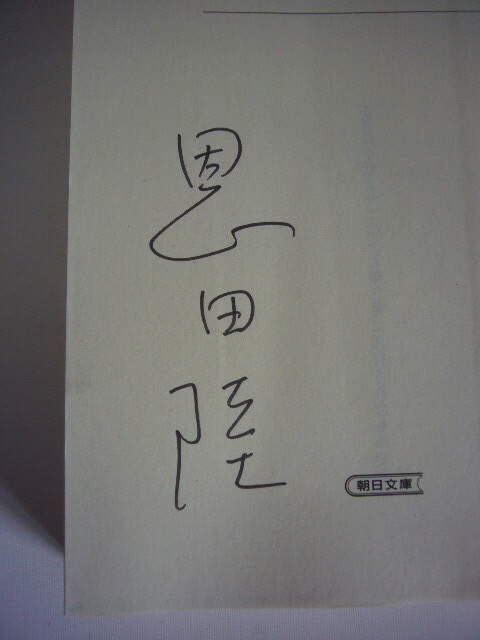 恩田陸
朝日文庫